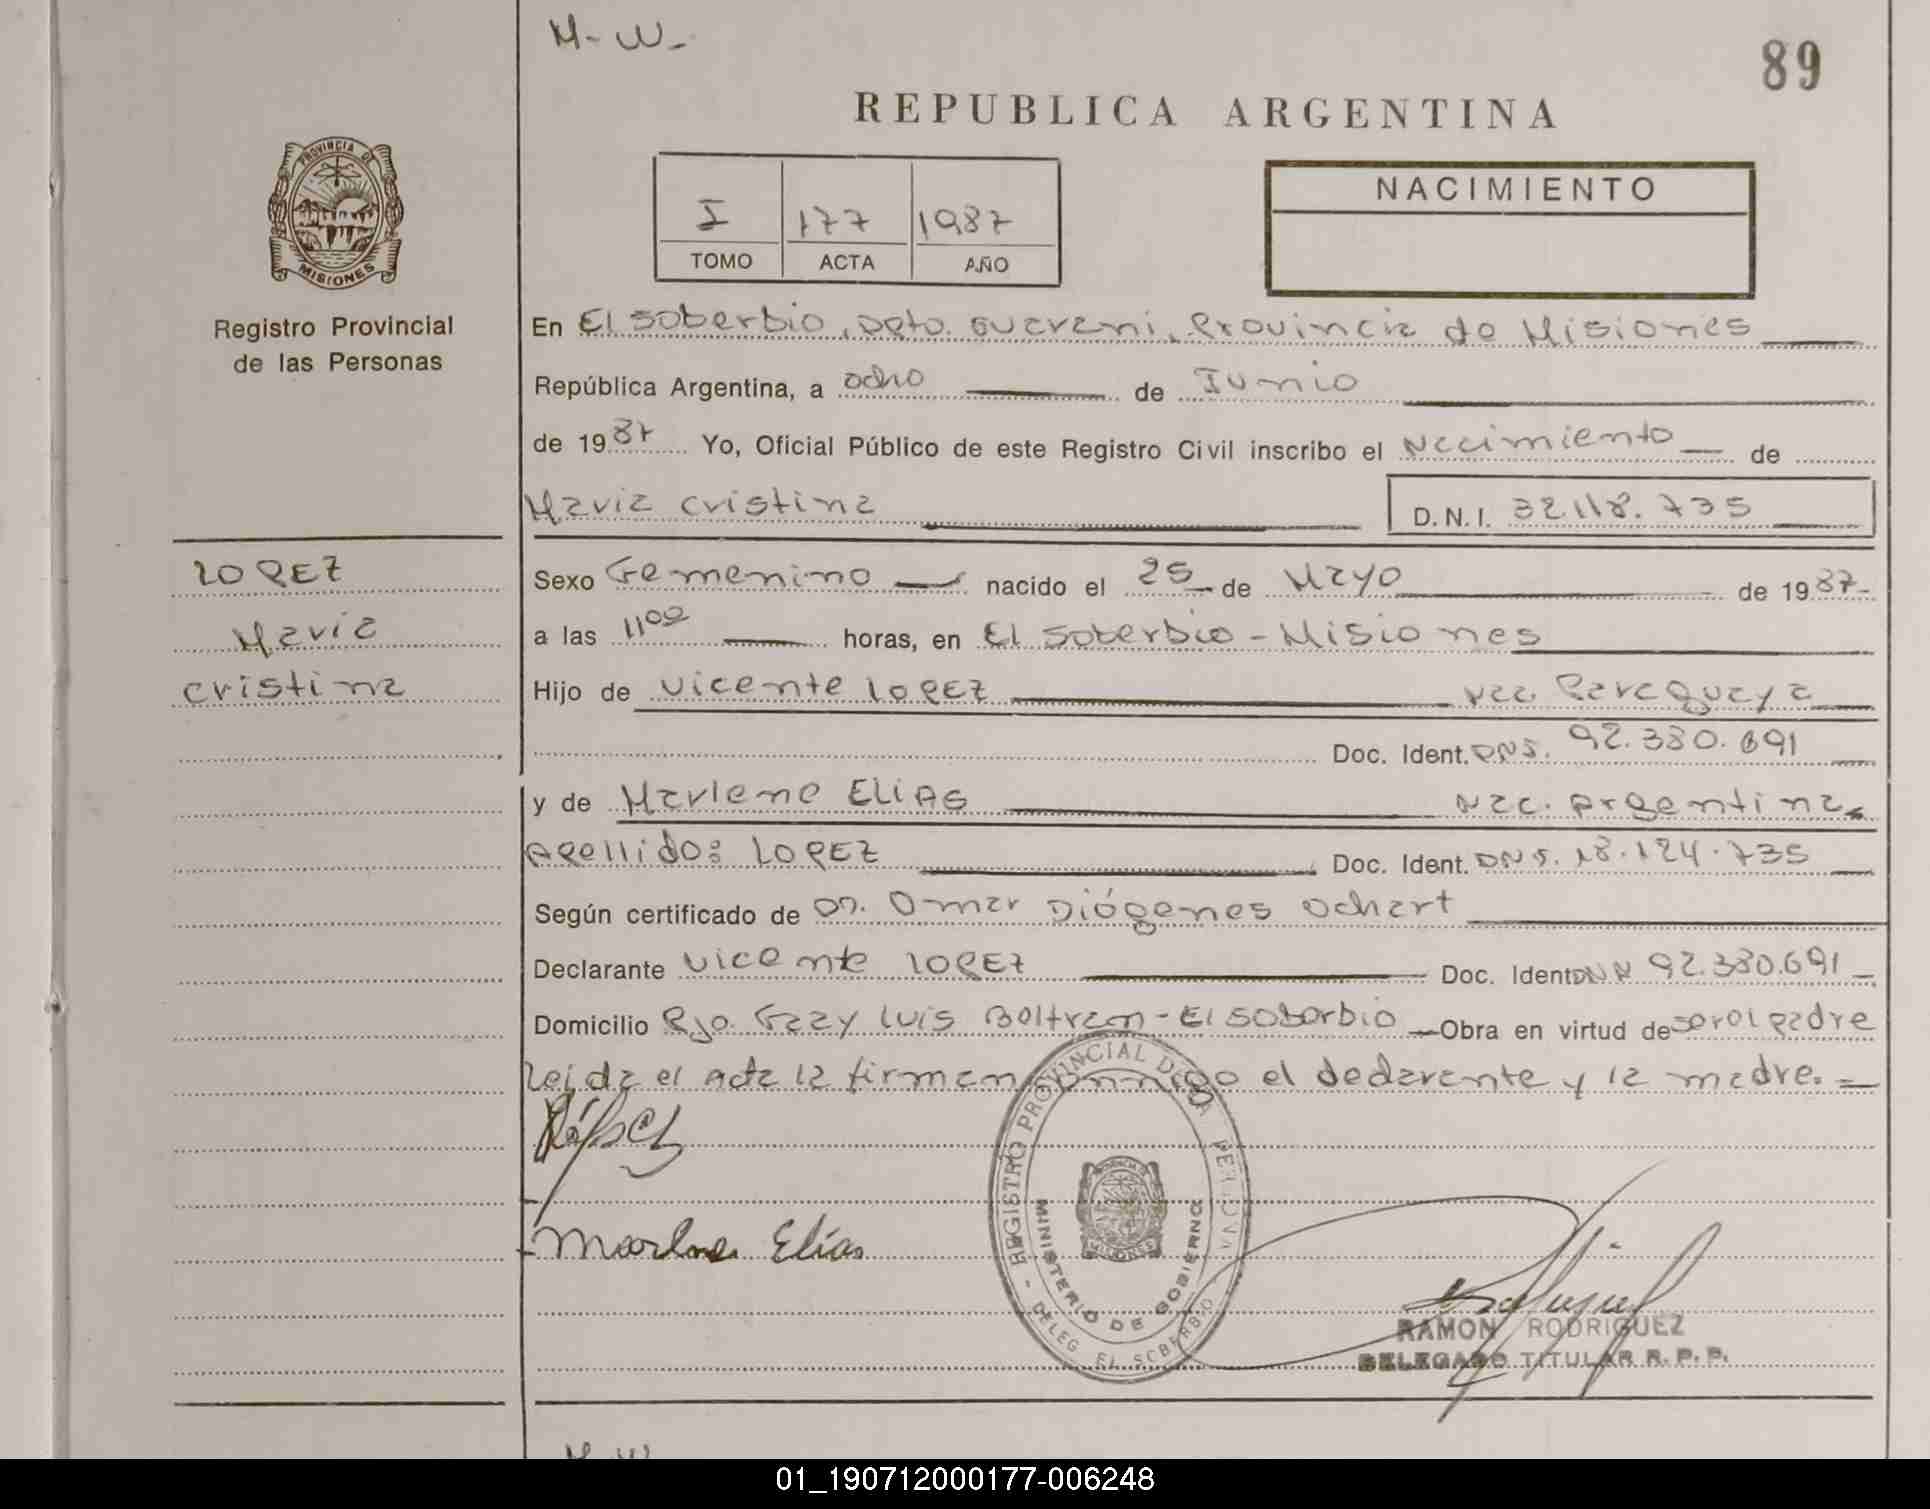 M-W-
89
REPUBLICA ARGENTINA
PROVINCIA DE
MISIONES
Registro Provincial
de las Personas
I 177 1987
TOMO ACTA AÑO
NACIMIENTO
En El Soberbio, Dpto. Guarani, Provincia de Misiones
República Argentina, a ocho de Junio
de 1987 Yo, Oficial Público de este Registro Civil inscribo el Nacimiento de
Maria Cristina D.N.I. 32.118.735
LOPEZ
Maria
Cristina
Sexo Femenino nacido el 25 de Mayo de 1987-
a las 11 00 horas, en El Soberbio - Misiones
Hijo de Vicente LOPEZ Nac. Paraguaya
Doc. Ident. DNI. 92.380.691
y de Marlene ELIAS Nac. Argentina
Apellido: LOPEZ Doc. Ident. DNI. 18.124.735
Según certificado de Dr. Omar Diógenes Ochart
Declarante Vicente LOPEZ Doc. Ident 92.380.691
Domicilio Pje. Fray Luis Beltran - El Soberbio Obra en virtud de ser el padre
Leida el acta la firman conmigo el declarante y la madre.=
Marlene Elías
REGISTRO PROVINCIAL DE LAS PERSONAS
MINISTERIO DE GOBIERNO
MISIONES
DELEG. EL SOBERBIO
RAMON RODRIGUEZ
DELEGADO TITULAR R.P.P.
M-W
01_190712000177-006248